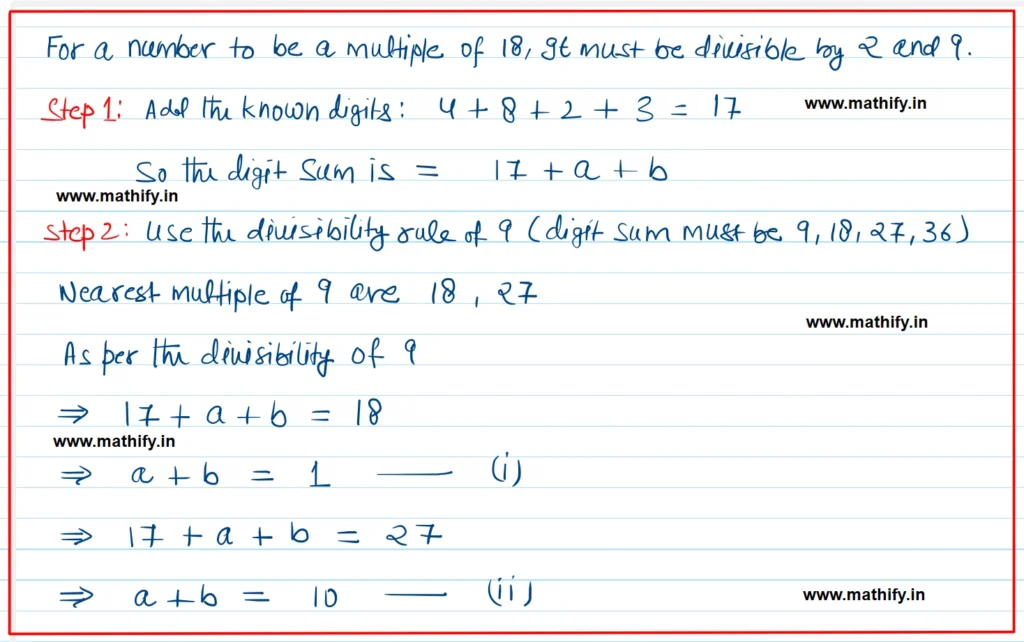 For a number to be a multiple of 18, It must be divisible by 2 and 9.
Step 1: Add the known digits: 4 + 8 + 2 + 3 = 17
www.mathify.in
So the digit sum is = 17 + a + b
www.mathify.in
Step 2: Use the divisibility rule of 9 (digit sum must be 9, 18, 27, 36)
Nearest multiple of 9 are 18, 27
www.mathify.in
As per the divisibility of 9
⇒ 17 + a + b = 18
www.mathify.in
⇒ a + b = 1 —— (i)
⇒ 17 + a + b = 27
⇒ a + b = 10 —— (ii)
www.mathify.in